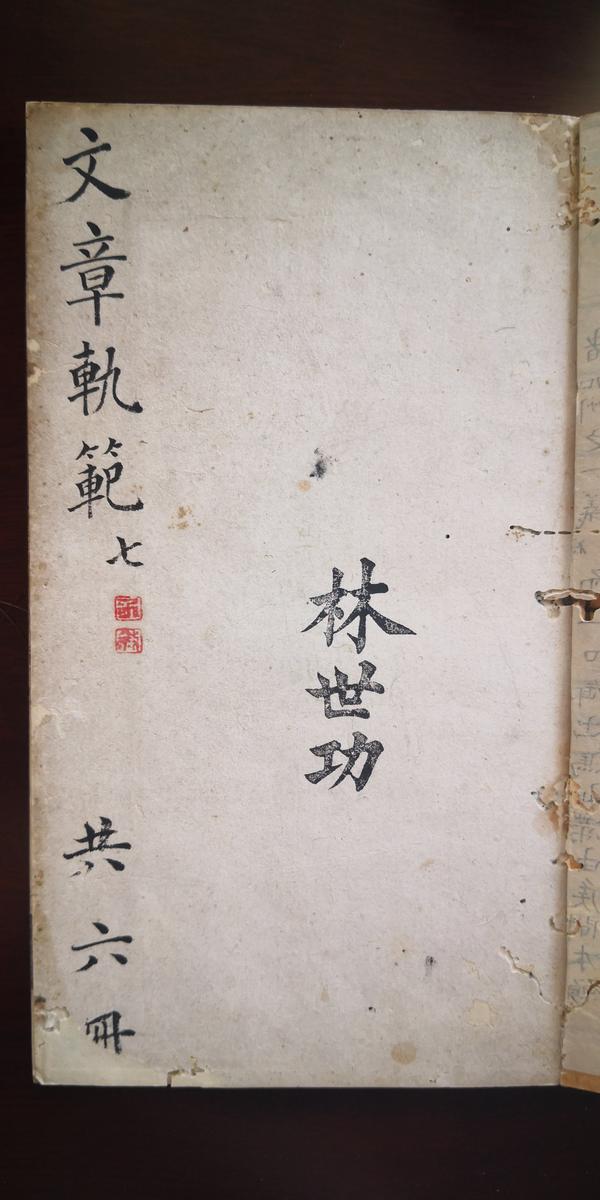 文章軌範 七
共六冊
林世功